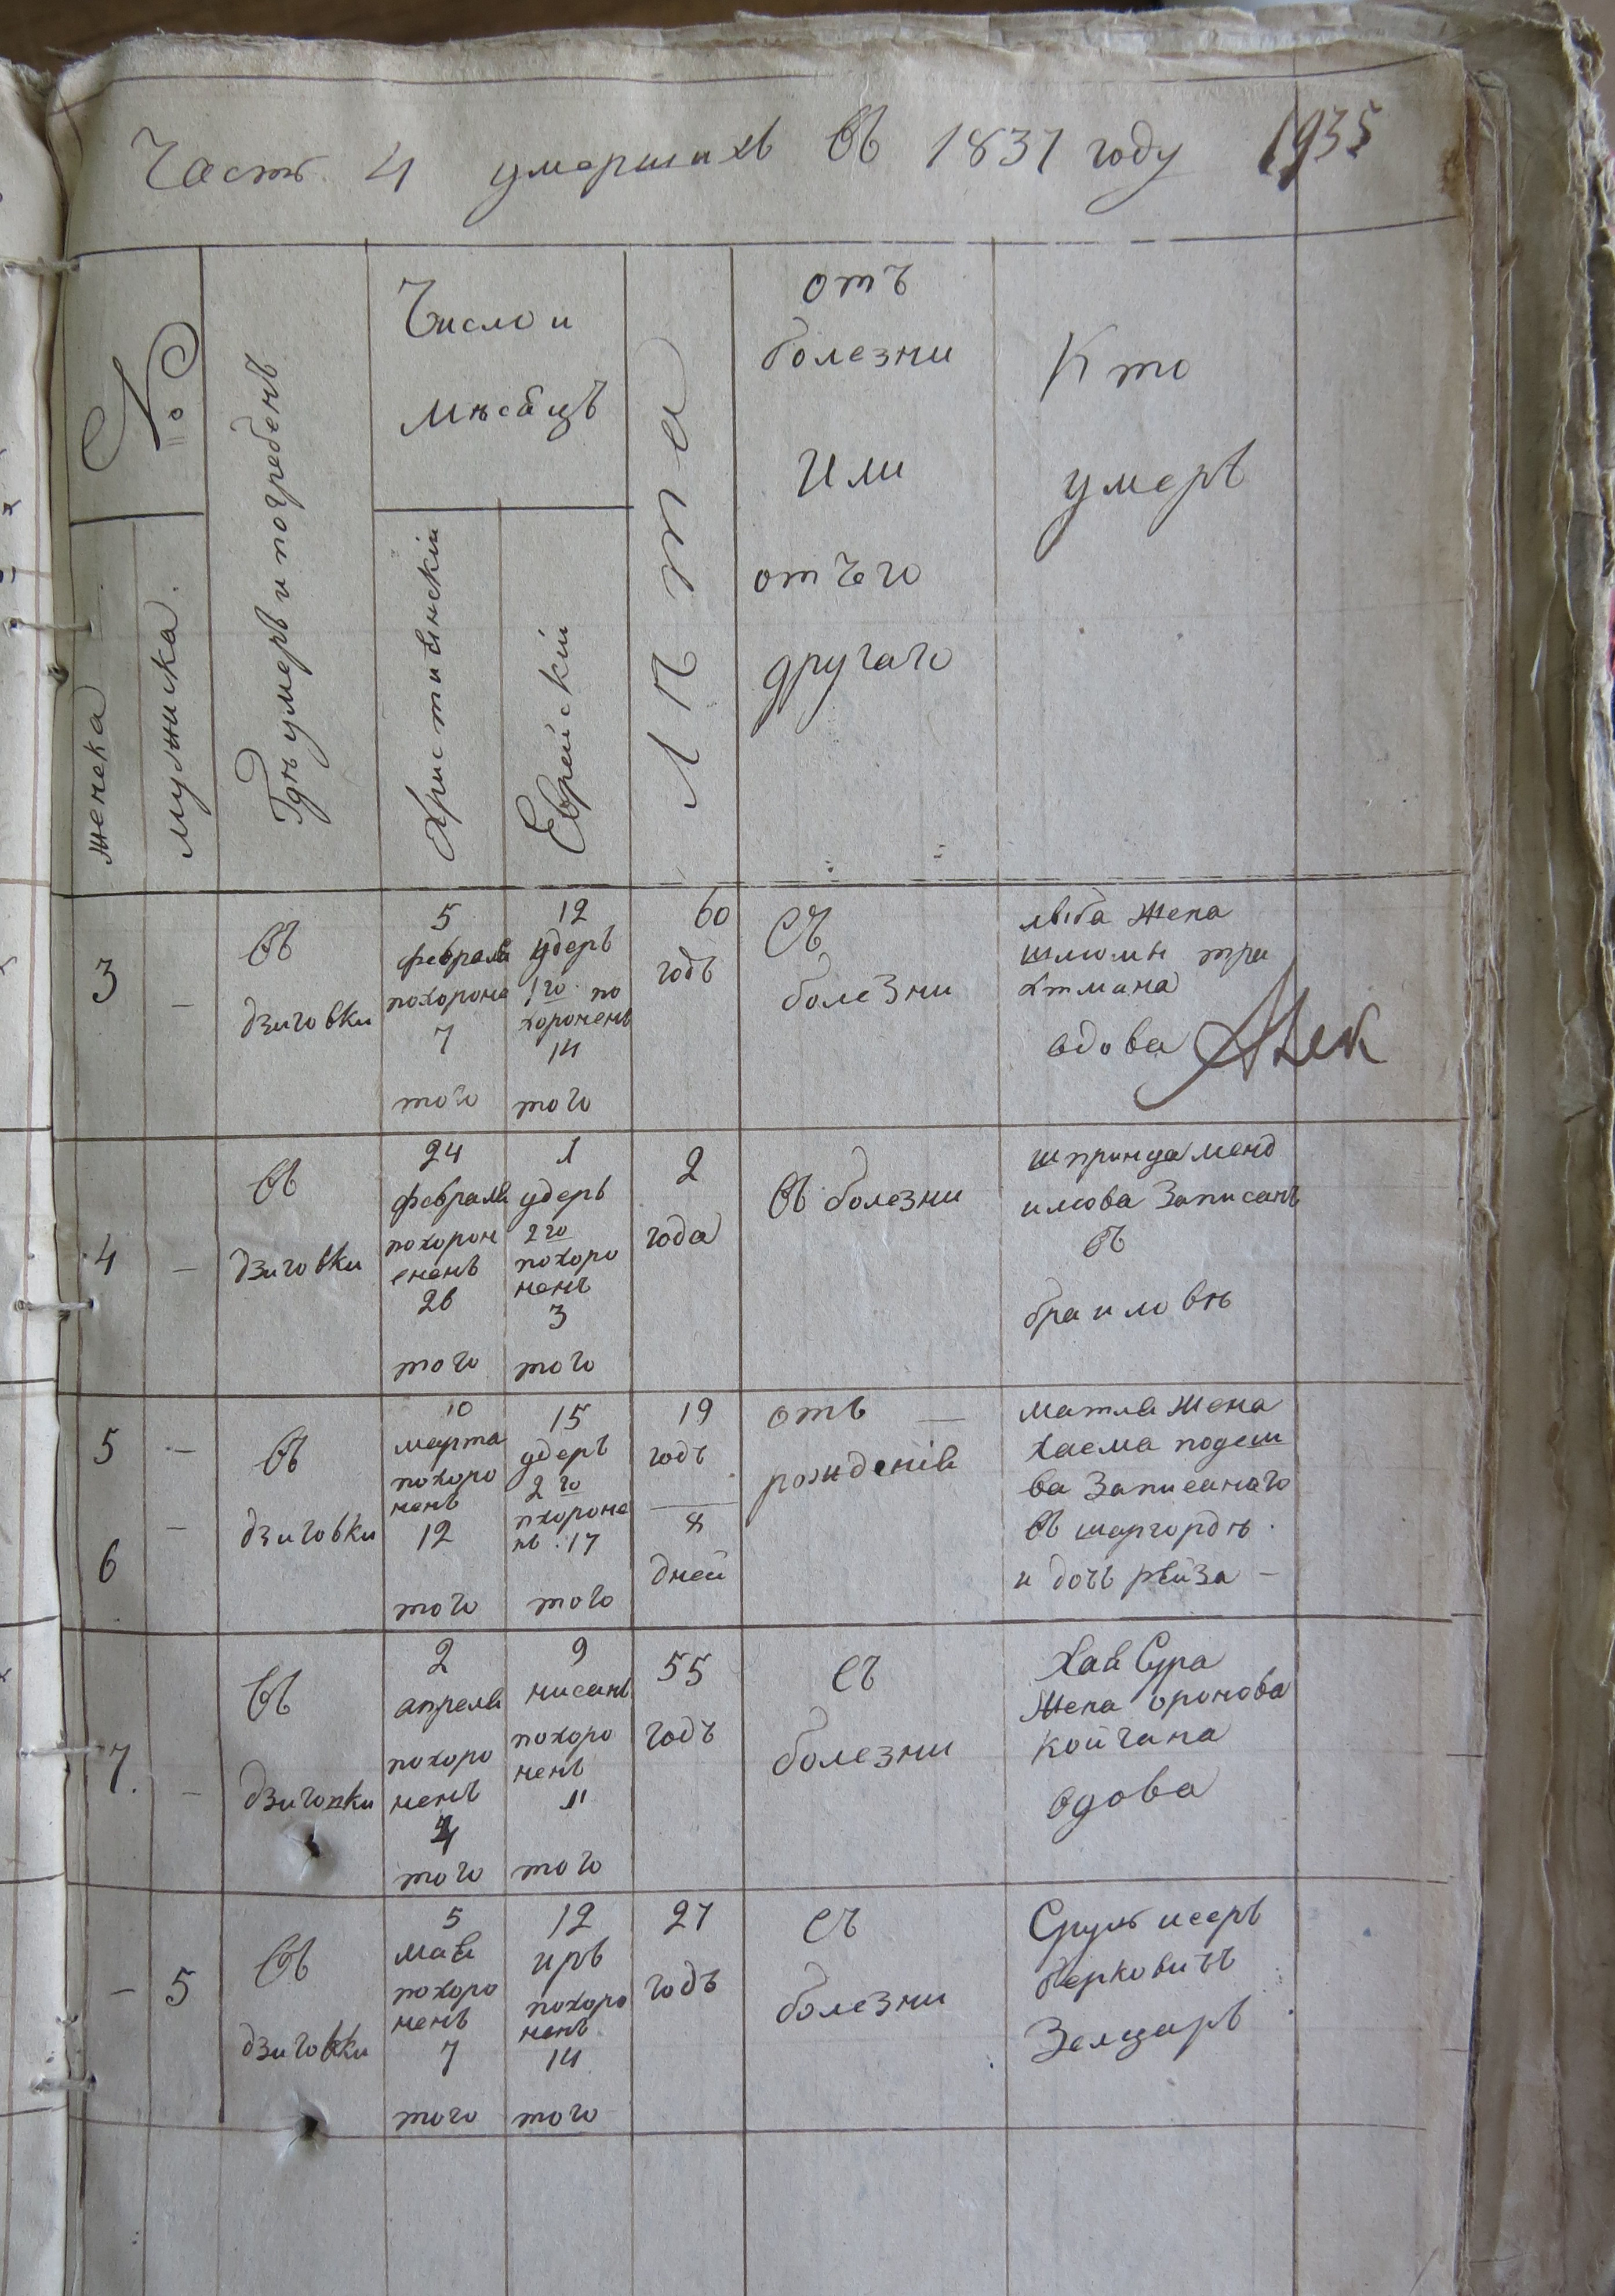 Часть 4 умершихъ въ 1837 году 1935
№
женска
мужиска.
Гдѣ умеръ и погребенъ
Число и
мѣсяцъ
Християнскій
Еврейскій
Лѣта
отъ
болезни
или
отъ чего
другаго
Кто
умеръ
3
—
въ
дзиговки
5
февраля
похороне
7
того
12
удеръ
1го по
хороненъ
14
того
60
годъ
съ
болезни
люба жена
шлюмы тра
хтмана
вдова
4
—
въ
дзиговки
24
февраля
похорон
ененъ
26
того
1
удеръ
2го
похоро
ненъ
3
того
2
года
въ болезни
шпринца менд
илова записанъ
въ
браиловѣ
5
—
6
—
въ
дзиговки
10
марта
похоро
ненъ
12
того
15
удеръ
2го
пхороне
нъ . 17
того
19
годъ
8
дней
отъ —
рожденія
матля жена
хаема подеш
ва записанаго
въ шаргордѣ .
и дочь рейза —
7.
—
въ
дзиговки
2
апреля
похоро
ненъ
4
того
9
нисанъ
похоро
ненъ
11
того
55
годъ
съ
болезни
хая Сура
жена оронова
койгана
вдова
—
5
въ
дзиговки
5
мая
похоро
ненъ
7
того
12
иръ
похоро
ненъ
14
того
27
годъ
съ
болезни
Сруль исеръ
берковичъ
Зелцаръ